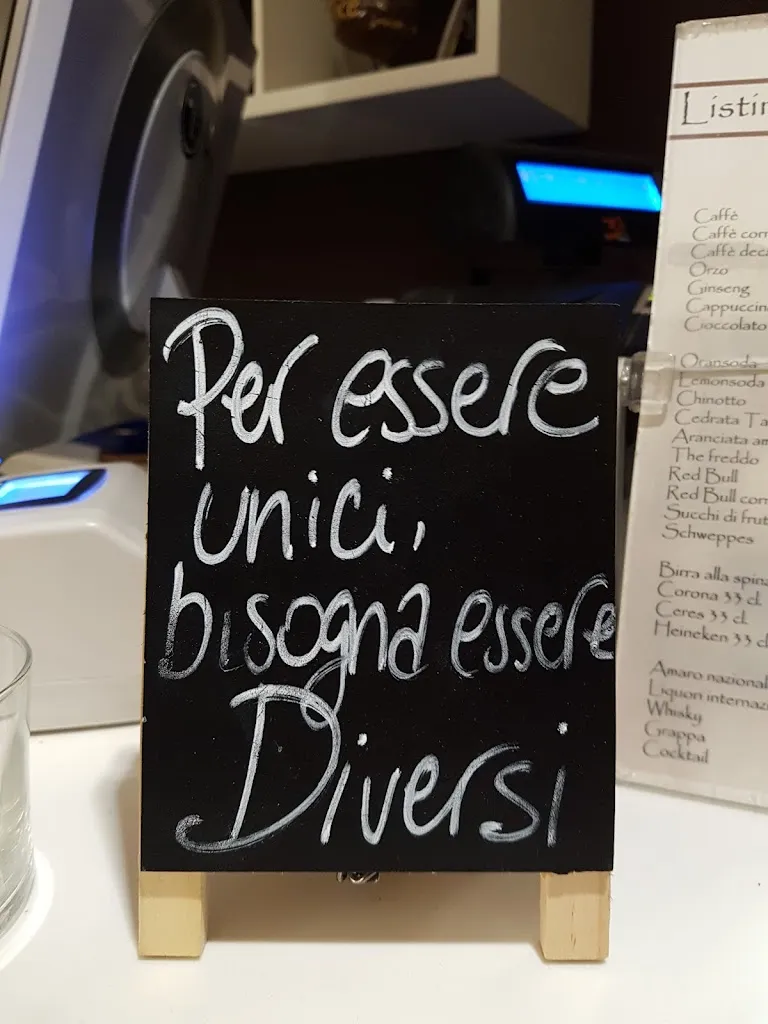 Per essere
unici,
bisogna essere
Diversi
Caffè
Caffè
Caffè
Orzo
Ginseng
Cioccolato
Oransoda
Lemonsoda
Chinotto
Cedrata
Aranciata
The freddo
Red Bull
Red Bull
Succhi di
Schweppes
Birra alla
Corona 33 cl
Ceres 33 cl
Heineken 33 cl
Amaro
Liquori
Whisky
Grappa
Cocktail